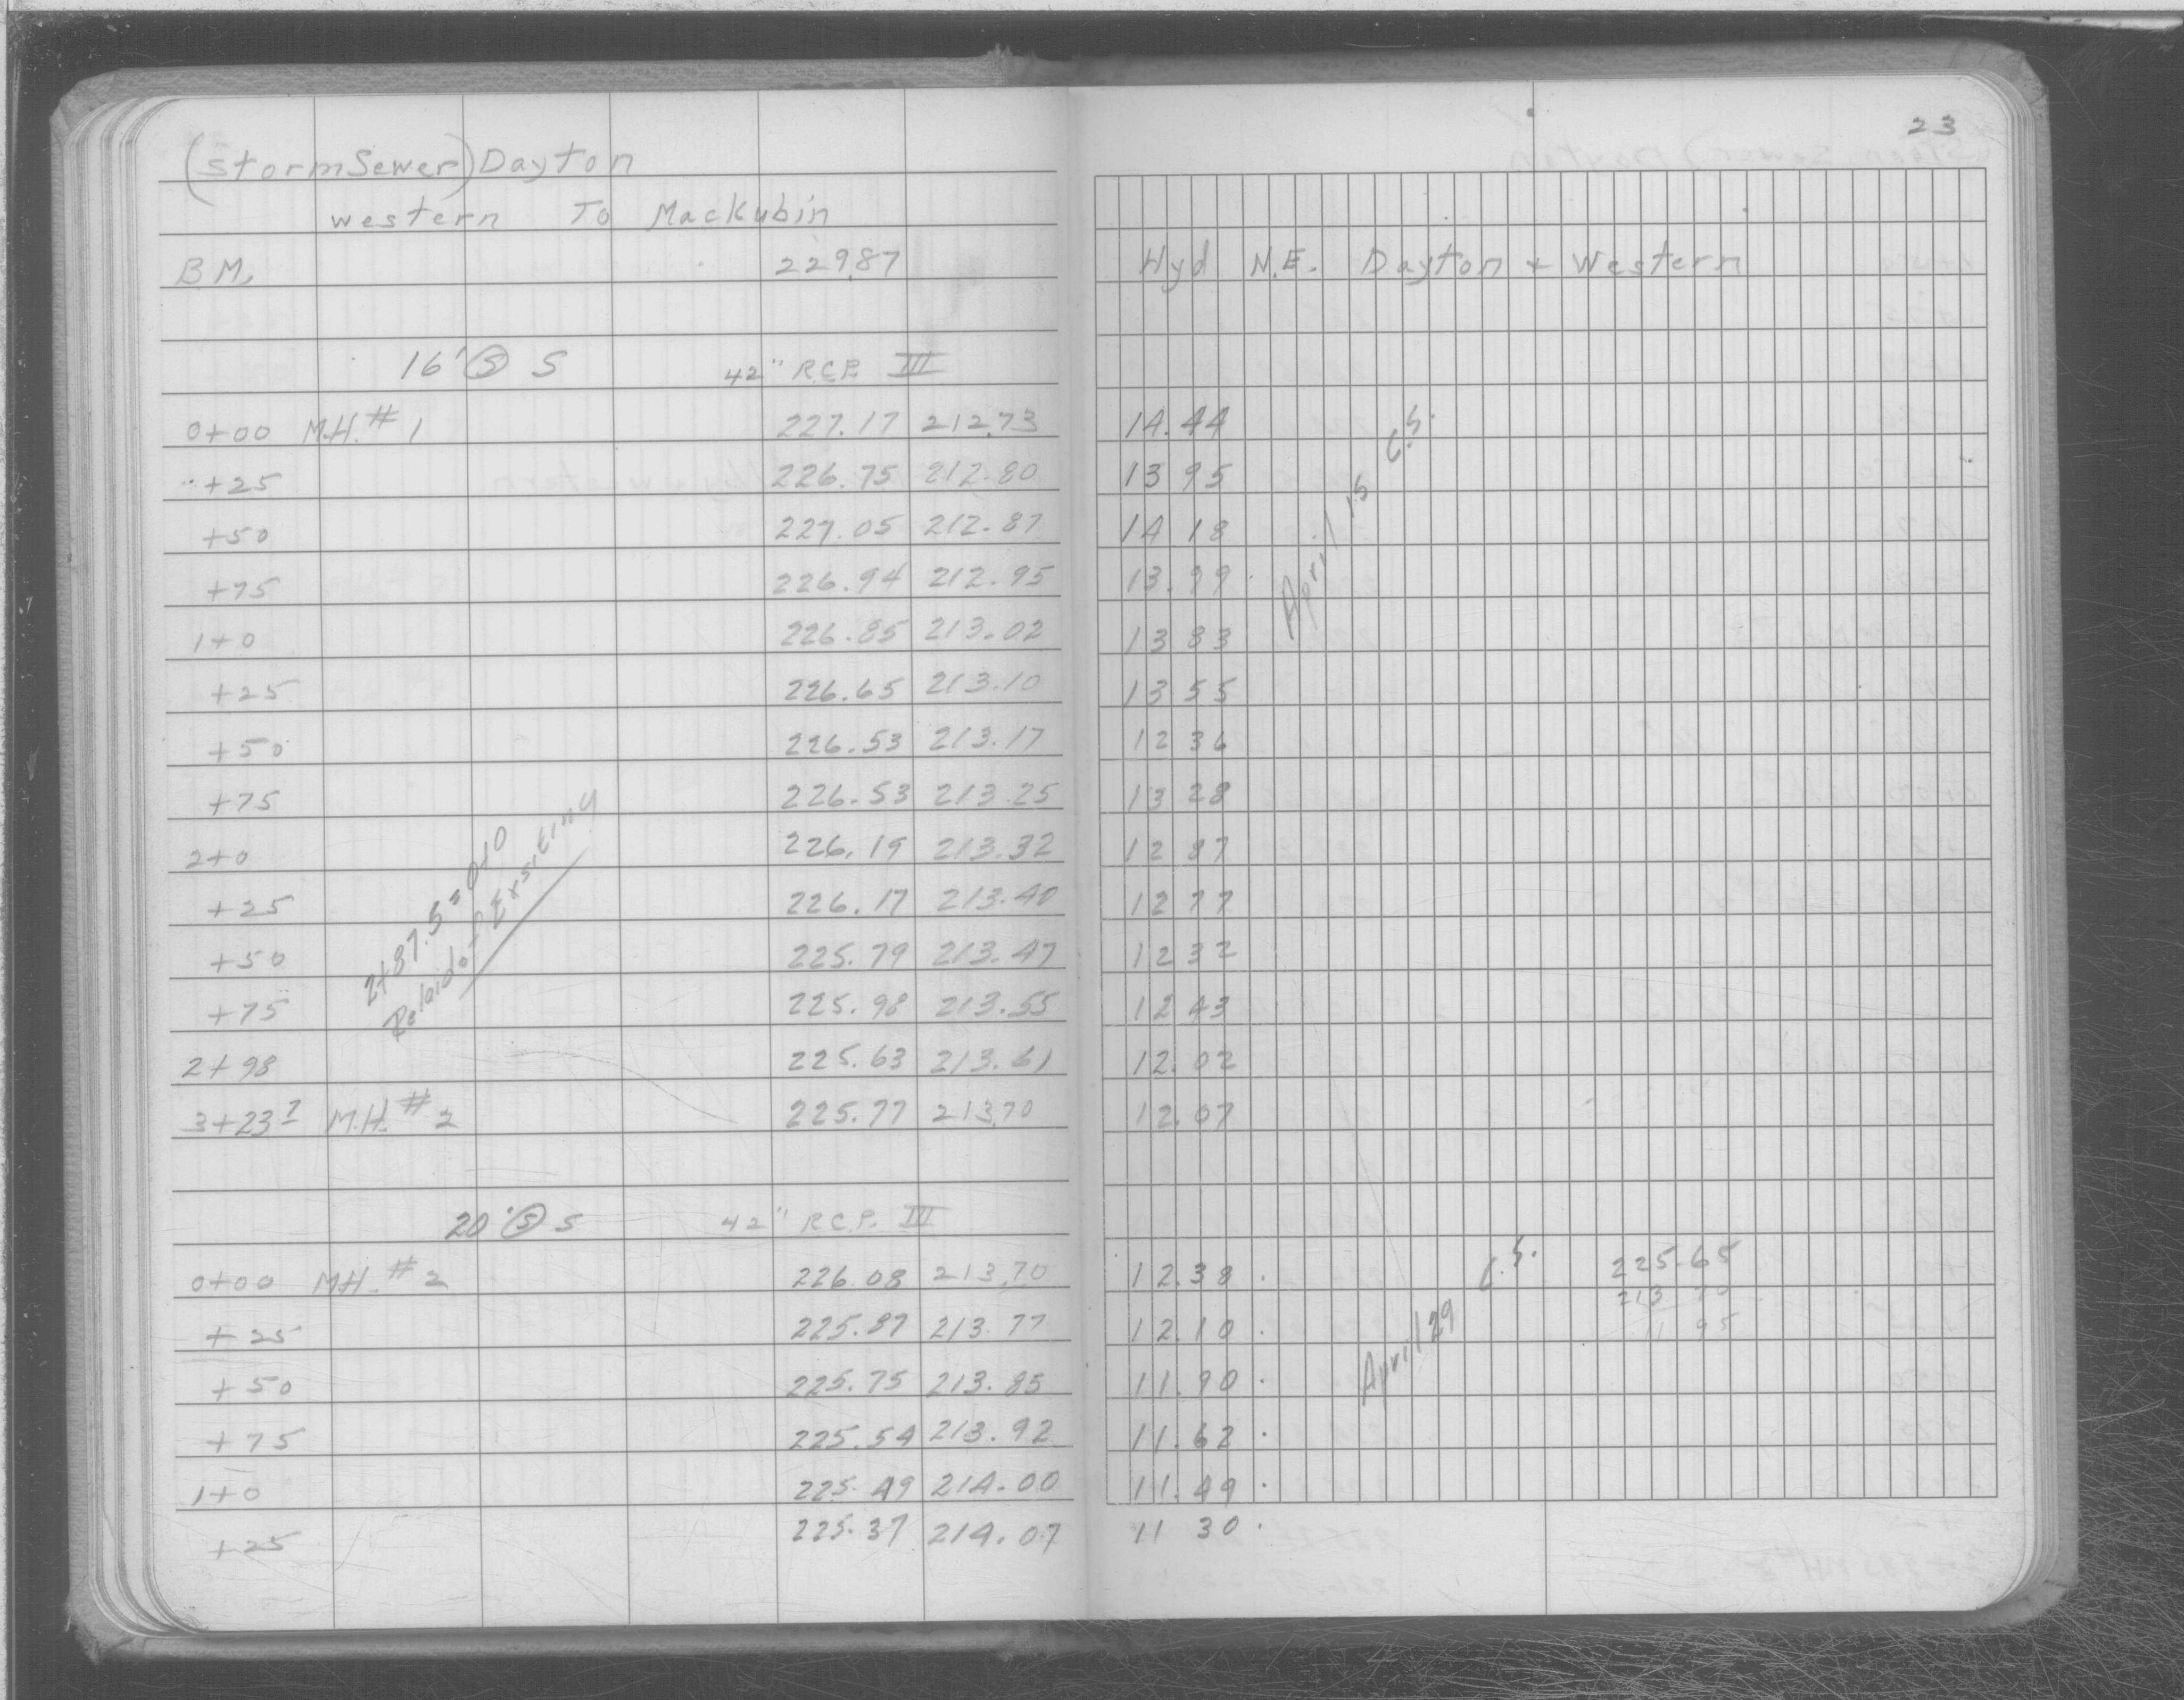 23
(Storm Sewer) Dayton
western To Mackubin
B M. 229.87 Hyd N.E. Dayton + Western
16' Ⓢ S 42" R.C.P. III
0+00 M.H. # 1 227.17 212.73 14.44
+25 226.75 212.80 13 95
+50 227.05 212.87 14 18
+75 226.94 212.95 13.99
1+0 226.85 213.02 13 83
+25 226.65 213.10 13 55
+50 226.53 213.17 12 36
+75 226.53 213.25 13 28
2+0 226.19 213.32 12 87
+25 226.17 213.40 12 77
+50 225.79 213.47 12 32
+75 225.98 213.55 12 43
2+98 225.63 213.61 12.02
3+23 7 M.H. # 2 225.77 213.70 12.07
2+87.5 = 0+0
Relaid Exsiting
April 15 C.S.
20' Ⓢ S 42" R.C.P. III
0+00 M.H. # 2 226.08 213.70 12.38
+25 225.87 213.77 12.10
+50 225.75 213.85 11.90
+75 225.54 213.92 11.62
1+0 225.49 214.00 11.49
+25 225.37 214.07 11 30
April 29 C.S.
225.65
213 70
11 95